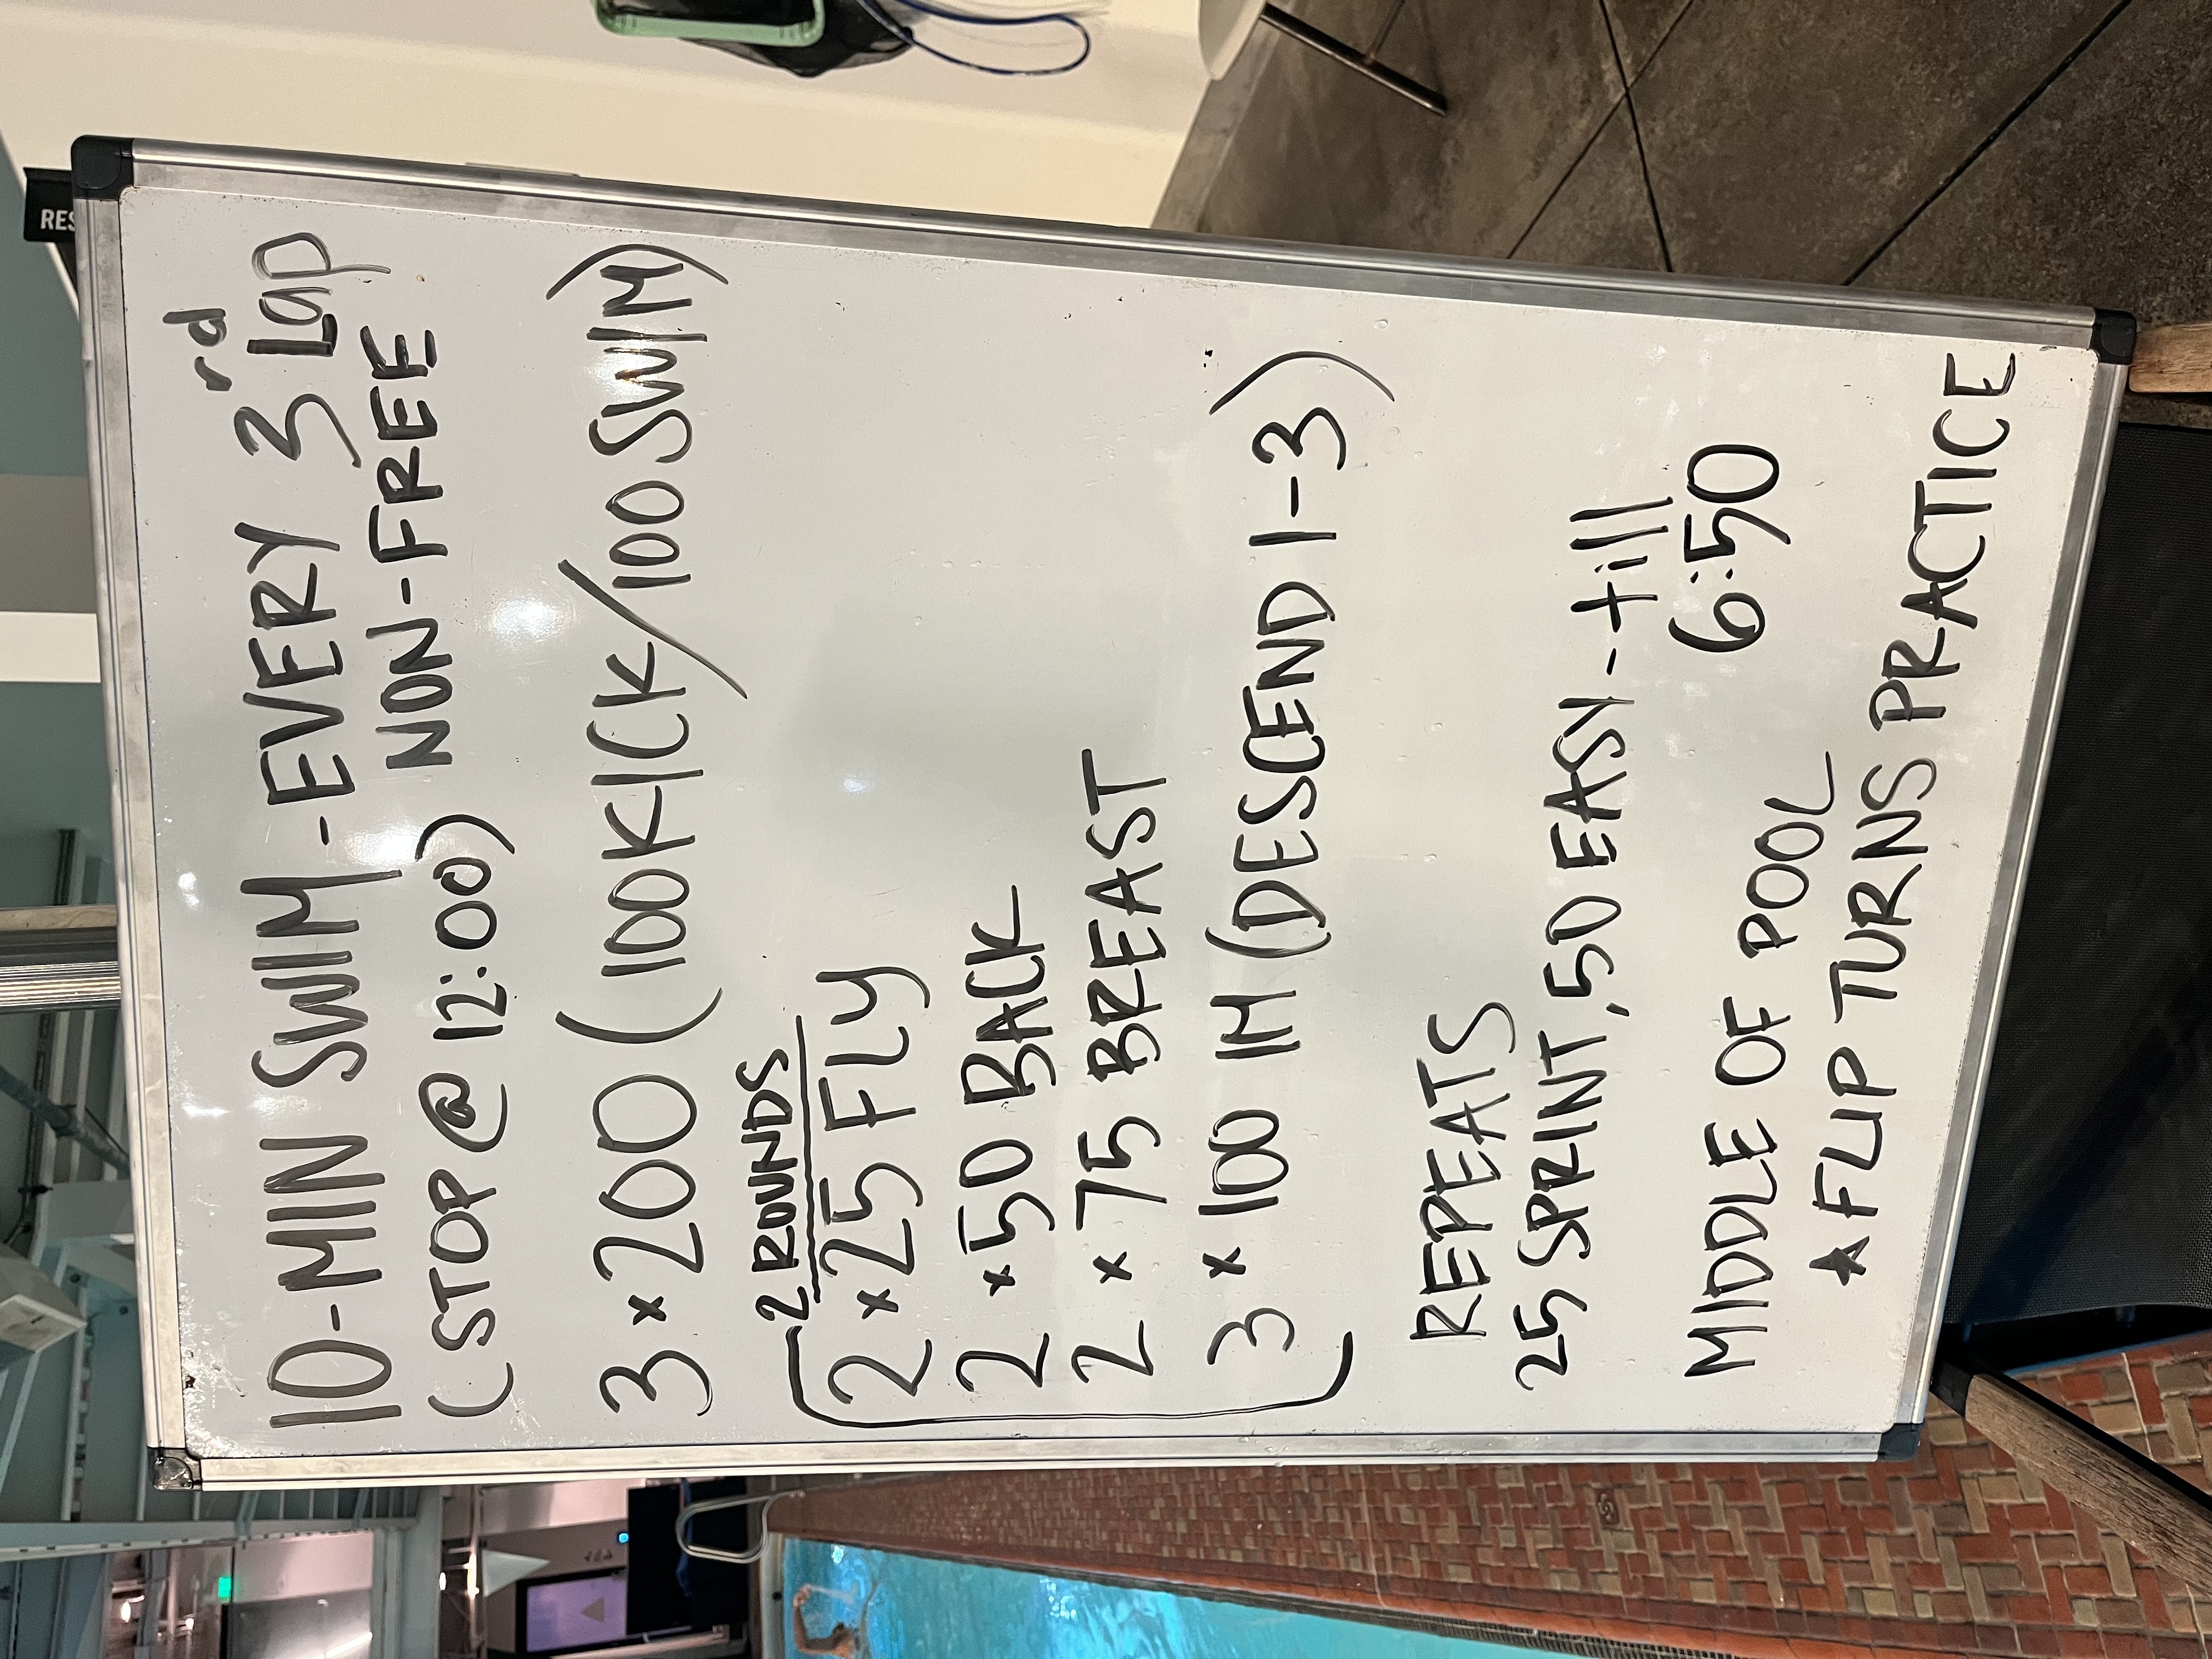 10-MIN SWIM - EVERY 3rd Lap
(STOP @ 12:00) NON-FREE
3 x 200 (100 KICK/100 SWIM)
2 ROUNDS
2 x 25 FLY
2 x 50 BACK
2 x 75 BREAST
3 x 100 IM (DESCEND 1-3)
REPEATS
25 SPRINT, 50 EASY - till
6:50
MIDDLE OF POOL
★ FLIP TURNS PRACTICE